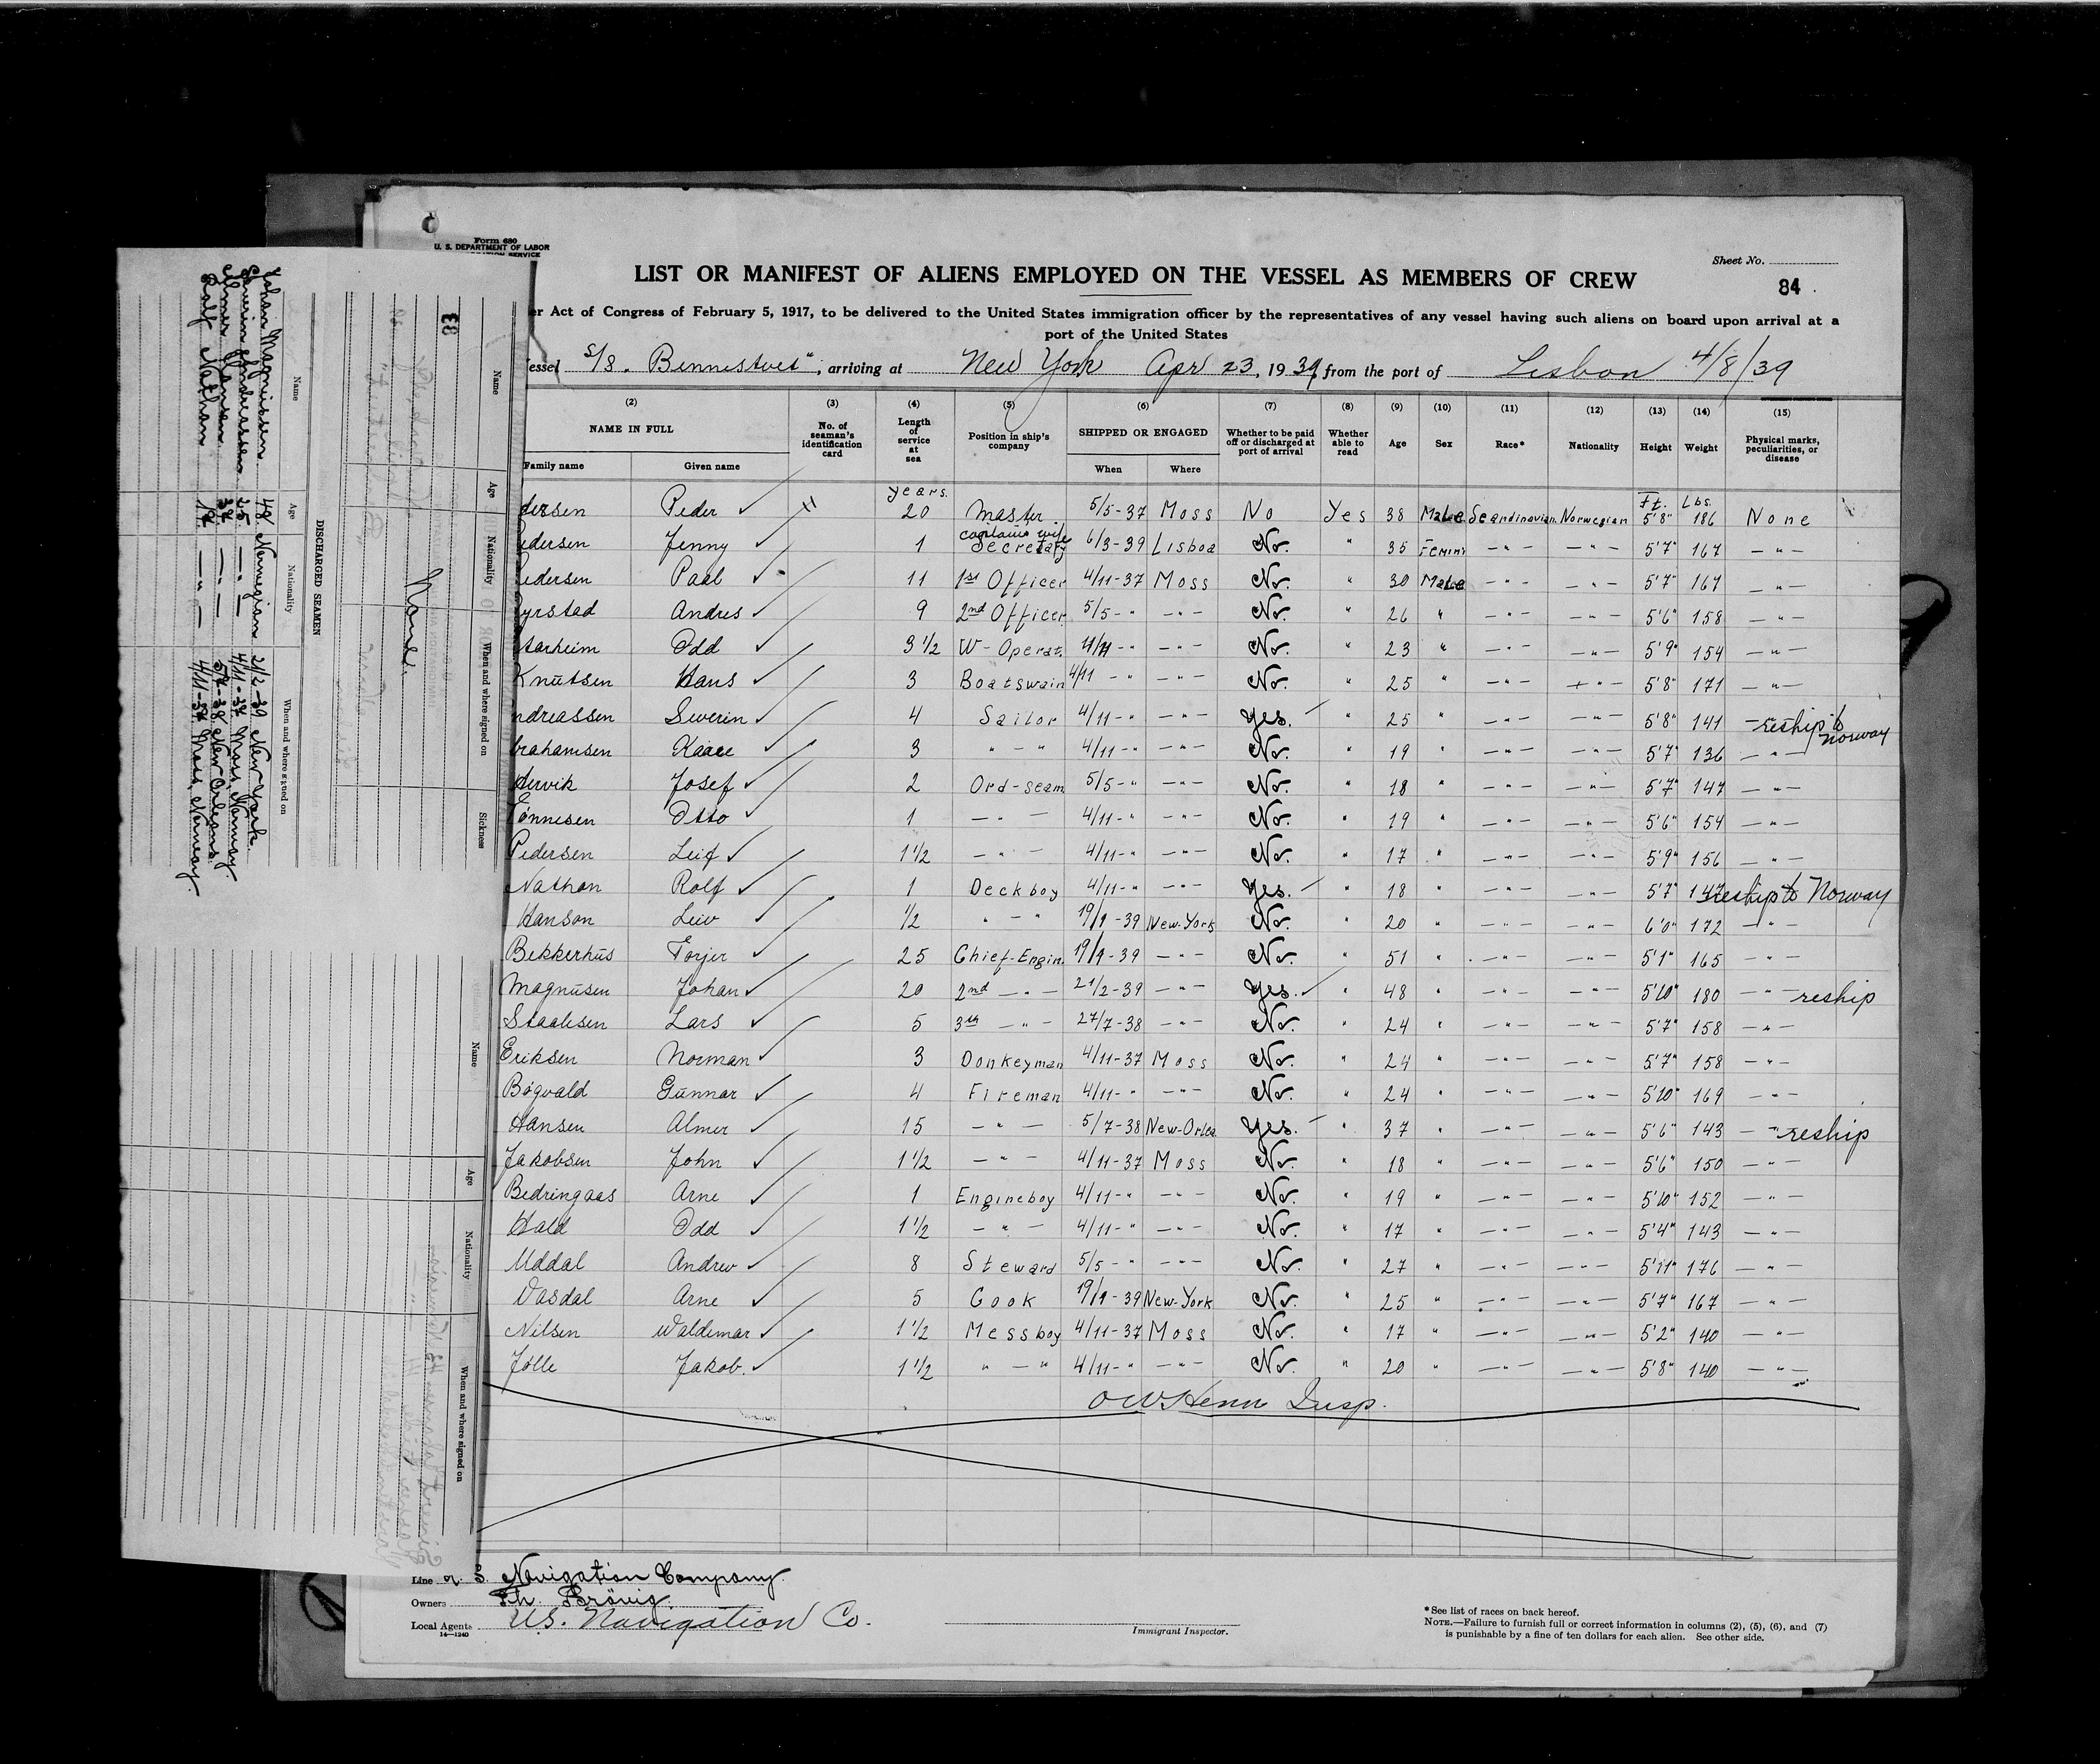 Form 680
U. S. DEPARTMENT OF LABOR
SERVICE
Sheet No.
84
LIST OR MANIFEST OF ALIENS EMPLOYED ON THE VESSEL AS MEMBERS OF CREW
er Act of Congress of February 5, 1917, to be delivered to the United States immigration officer by the representatives of any vessel having such aliens on board upon arrival at a
port of the United States
essel S/S. Bennestvet", arriving at New York Apr 23, 1939, from the port of Lisbon 4/8/39
(2) (3) (4) (5) (6) (7) (8) (9) (10) (11) (12) (13) (14) (15)
NAME IN FULL No. of seaman's identification card Length of service at sea Position in ship's company SHIPPED OR ENGAGED Whether to be paid off or discharged at port of arrival Whether able to read Age Sex Race* Nationality Height Weight Physical marks, peculiarities, or disease
Family name Given name When Where
years. Ft. Lbs.
dersen Peder 20 Master 5/5-37 Moss No Yes 38 Male Scandinavian Norwegian 5'8" 186 None
edersen Jenny 1 captains wife Secretary 6/3-39 Lisboa No. " 35 Femin 5'7" 167 -"-
edersen Paal 11 1st Officer 4/11-37 Moss No. " 30 Male -"- -"- 5'7" 167 -"-
yrstad Andres 9 2nd Officer 5/5-" -"- No. " 26 " -"- -"- 5'6" 158 -"-
tarheim Odd 3 1/2 W-Operat. 4/11-" -"- No. " 23 " -"- -"- 5'9" 154 -"-
Knutsen Hans 3 Boatswain 4/11-" -"- No. " 25 " -"- -"- 5'8" 171 -"-
ndreassen Severin 4 Sailor 4/11-" -"- Yes. " 25 " -"- -"- 5'8" 141 reship to Norway
brahamsen Kaare 3 "-" 4/11-" -"- No. " 19 " -"- -"- 5'7" 136 -"-
Hervik Josef 2 Ord-seam 5/5-" -"- No. " 18 " -"- -"- 5'7" 147 -"-
Tönnesen Otto 1 -"- 4/11-" -"- No. " 19 " -"- -"- 5'6" 154 -"-
Pedersen Leif 1 1/2 -"- 4/11-" -"- No. " 17 " -"- -"- 5'9" 156 -"-
Nathan Rolf 1 Deckboy 4/11-" -"- Yes. " 18 " -"- -"- 5'7" 147 reship to Norway
Hanson Leiv 1/2 "-" 19/1-39 New-York No. " 20 " -"- -"- 6'0" 172 -"-
Bekkerhus Torjer 25 Chief-Engin. 19/1-39 -"- No. " 51 " -"- -"- 5'1" 165 -"-
Magnusen Johan 20 2nd -"- 21/2-39 -"- Yes. " 48 " -"- -"- 5'10" 180 -"- reship
Staalesen Lars 5 3th -"- 27/7-38 -"- No. " 24 " -"- -"- 5'7" 158 -"-
Eriksen Norman 3 Donkeyman 4/11-37 Moss No. " 24 " -"- -"- 5'7" 158 -"-
Bögvald Gunnar 4 Fireman 4/11-" -"- No. " 24 " -"- -"- 5'10" 169 -"-
Hansen Almer 15 -"- 5/7-38 New-Orlea. Yes. " 37 " -"- -"- 5'6" 143 -"- reship
Jakobsen John 1 1/2 -"- 4/11-37 Moss No. " 18 " -"- -"- 5'6" 150 -"-
Bedringaas Arne 1 Engineboy 4/11-" -"- No. " 19 " -"- -"- 5'10" 152 -"-
Hald Odd 1 1/2 -"- 4/11-" -"- No. " 17 " -"- -"- 5'4" 143 -"-
Uddal Andrew 8 Steward 5/5-" -"- No. " 27 " -"- -"- 5'11" 176 -"-
Vasdal Arne 5 Cook 19/1-39 New-York No. " 25 " -"- -"- 5'7" 167 -"-
Nilsen Waldemar 1 1/2 Messboy 4/11-37 Moss No. " 17 " -"- -"- 5'2" 140 -"-
Jolle Jakob. 1 1/2 "-" 4/11-" -"- No. " 20 " -"- -"- 5'8" 140 -"-
OW Henn Insp.
Line U. S. Navigation Company
Owners Th Brövig.
Local Agents U.S. Navigation Co.
14—1240
Immigrant Inspector.
*See list of races on back hereof.
NOTE.—Failure to furnish full or correct information in columns (2), (5), (6), and (7)
is punishable by a fine of ten dollars for each alien. See other side.
83
Name Age Nationality When and where signed on Sickness
None.
DISCHARGED SEAMEN
Name Age Nationality When and where signed on
Johan Magnussen. 48 Norwegian 21/2-39 New York.
Severin Andreassen 25 -"- 4/11-37 Moss, Norway.
Almer Hansen 37 -"- 5/7-38 New Orleans.
Rolf Nathan 18 -"- 4/11-37 Moss, Norway.
Name Age Nationality When and where signed on